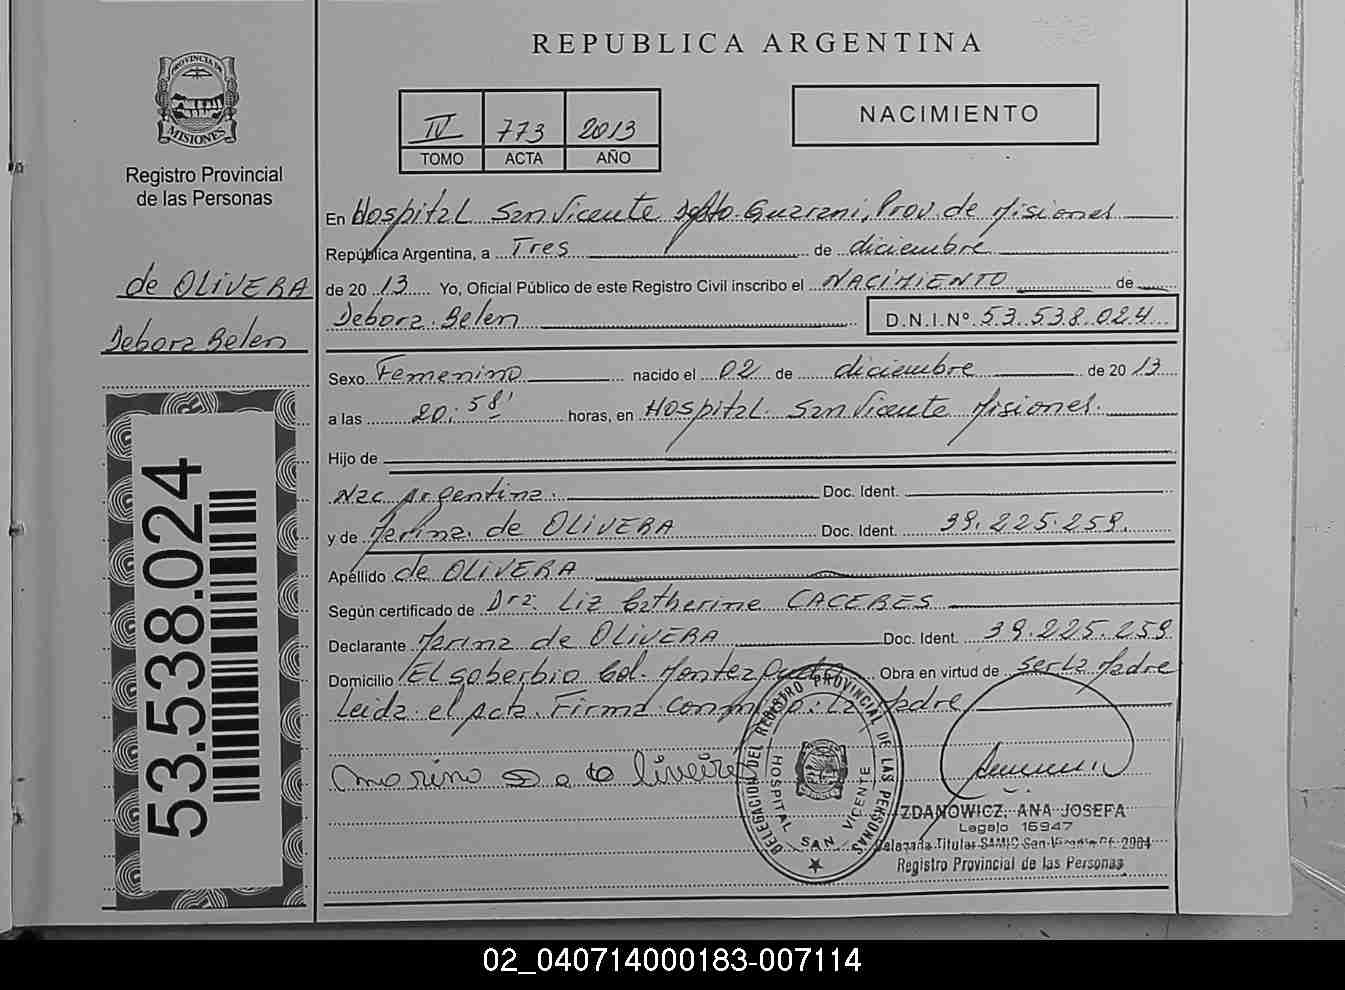 REPUBLICA ARGENTINA
PROVINCIA DE
MISIONES
Registro Provincial
de las Personas
IV 773 2013
TOMO ACTA AÑO
NACIMIENTO
de OLIVERA
Debora Belen
53.538.024
En Hospital San Vicente Dpto. Guarani, Prov. de Misiones
República Argentina, a Tres de diciembre
de 20 13 Yo, Oficial Público de este Registro Civil inscribo el NACIMIENTO de
Debora Belen D.N.I.Nº 53.538.024
Sexo Femenino nacido el 02 de diciembre de 20 13
a las 20:58' horas, en Hospital San Vicente Misiones.
Hijo de
Nac Argentina. Doc. Ident.
y de Marina de OLIVERA Doc. Ident. 39.225.259.
Apellido de OLIVERA
Según certificado de Dra. Liz Catherine CACERES
Declarante Marina de OLIVERA Doc. Ident. 39.225.259
Domicilio El Soberbio Col. Monteagudo Obra en virtud de ser La Madre
Leida el Acta Firma Conmigo: La Madre
DELEGACION DEL REGISTRO PROVINCIAL DE LAS PERSONAS
HOSPITAL SAN VICENTE
ZDANOWICZ, ANA JOSEFA
Legajo 15947
Delegada Titular SAMIC San Vicente Of. 2904
Registro Provincial de las Personas
02_040714000183-007114